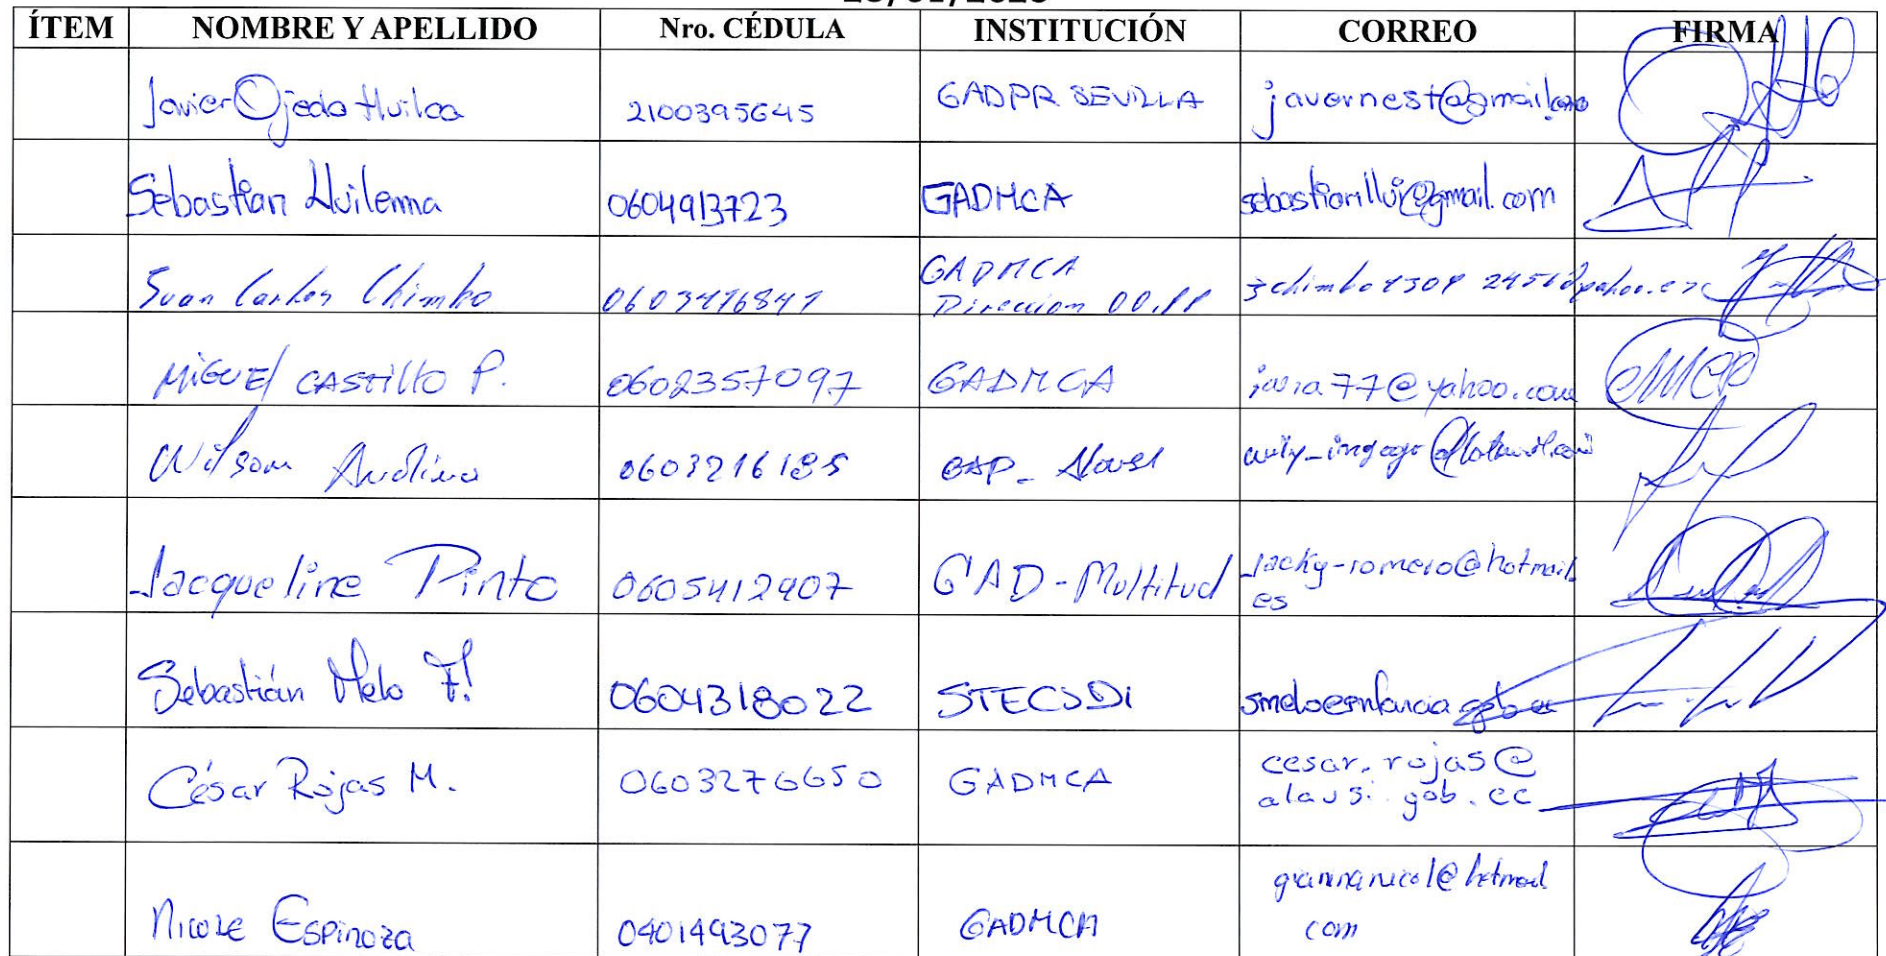 ÍTEM NOMBRE Y APELLIDO Nro. CÉDULA INSTITUCIÓN CORREO FIRMA
Javier Ojeda Huilca 2100395645 GADPR SEVILLA javernest@gmail.com
Sebastian Lluilema 0604913723 GADMCA sebastianllui@gmail.com
Juan Carlos Chimbo GADMCA
Dirección OO.PP
MIGUEL CASTILLO P. 0602357097 GADMCA @yahoo.com
Wilson 0603216185 GAD_ Alausí
Jacqueline Pinto 0605412907 GAD-Multitud Jacky-romero@hotmail.
es
Sebastián Melo F. 0604318022 STECSDI
César Rojas M. 0603276650 GADMCA cesar.rojas@
alausi.gob.ec
Nicole Espinoza 0401493077 GADMCA gianinanicol@hotmail
com